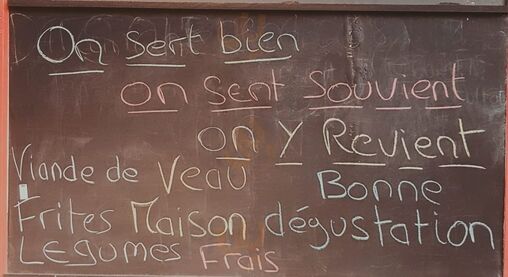 On sent bien
on sent souvient
on y Revient
Viande de Veau Bonne
Frites Maison dégustation
Legumes Frais